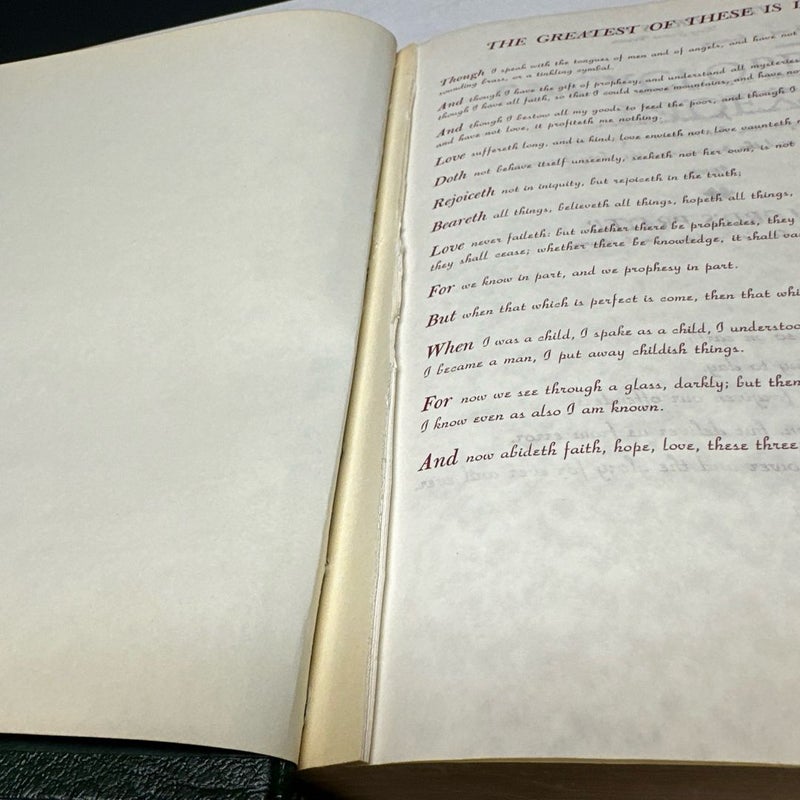 THE GREATEST OF THESE IS
Though I speak with the tongues of men and of angels, and have not
sounding brass, or a tinkling cymbal.
And though I have the gift of prophesy, and understand all mysteries
though I have all faith, so that I could remove mountains, and have no
And though I bestow all my goods to feed the poor, and though I
and have not love, it profiteth me nothing.
Love suffereth long, and is kind; love envieth not; love vaunteth
Doth not behave itself unseemly, seeketh not her own, is not
Rejoiceth not in iniquity, but rejoiceth in the truth;
Beareth all things, believeth all things, hopeth all things,
Love never faileth: but whether there be prophecies, they
they shall cease; whether there be knowledge, it shall va
For we know in part, and we prophesy in part.
But when that which is perfect is come, then that whi
When I was a child, I spake as a child, I understoo
I became a man, I put away childish things.
For now we see through a glass, darkly; but then
I know even as also I am known.
And now abideth faith, hope, love, these three